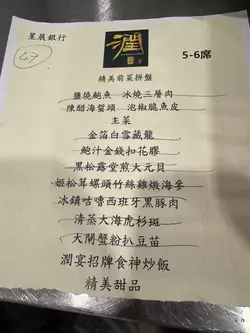 星展銀行
47
潤
5-6席
精美前菜拼盤
鹽燒鮑魚 冰燒三層肉
陳醋海蜇頭 泡椒脆魚皮
主菜
金箔白雪藏龍
鮑汁金錢扣花膠
黑松露堂煎大元貝
姬松茸螺頭竹絲雞燉海參
冰鎮咕嚕西班牙黑豚肉
清蒸大海虎杉斑
大閘蟹粉扒豆苗
潤宴招牌食神炒飯
精美甜品